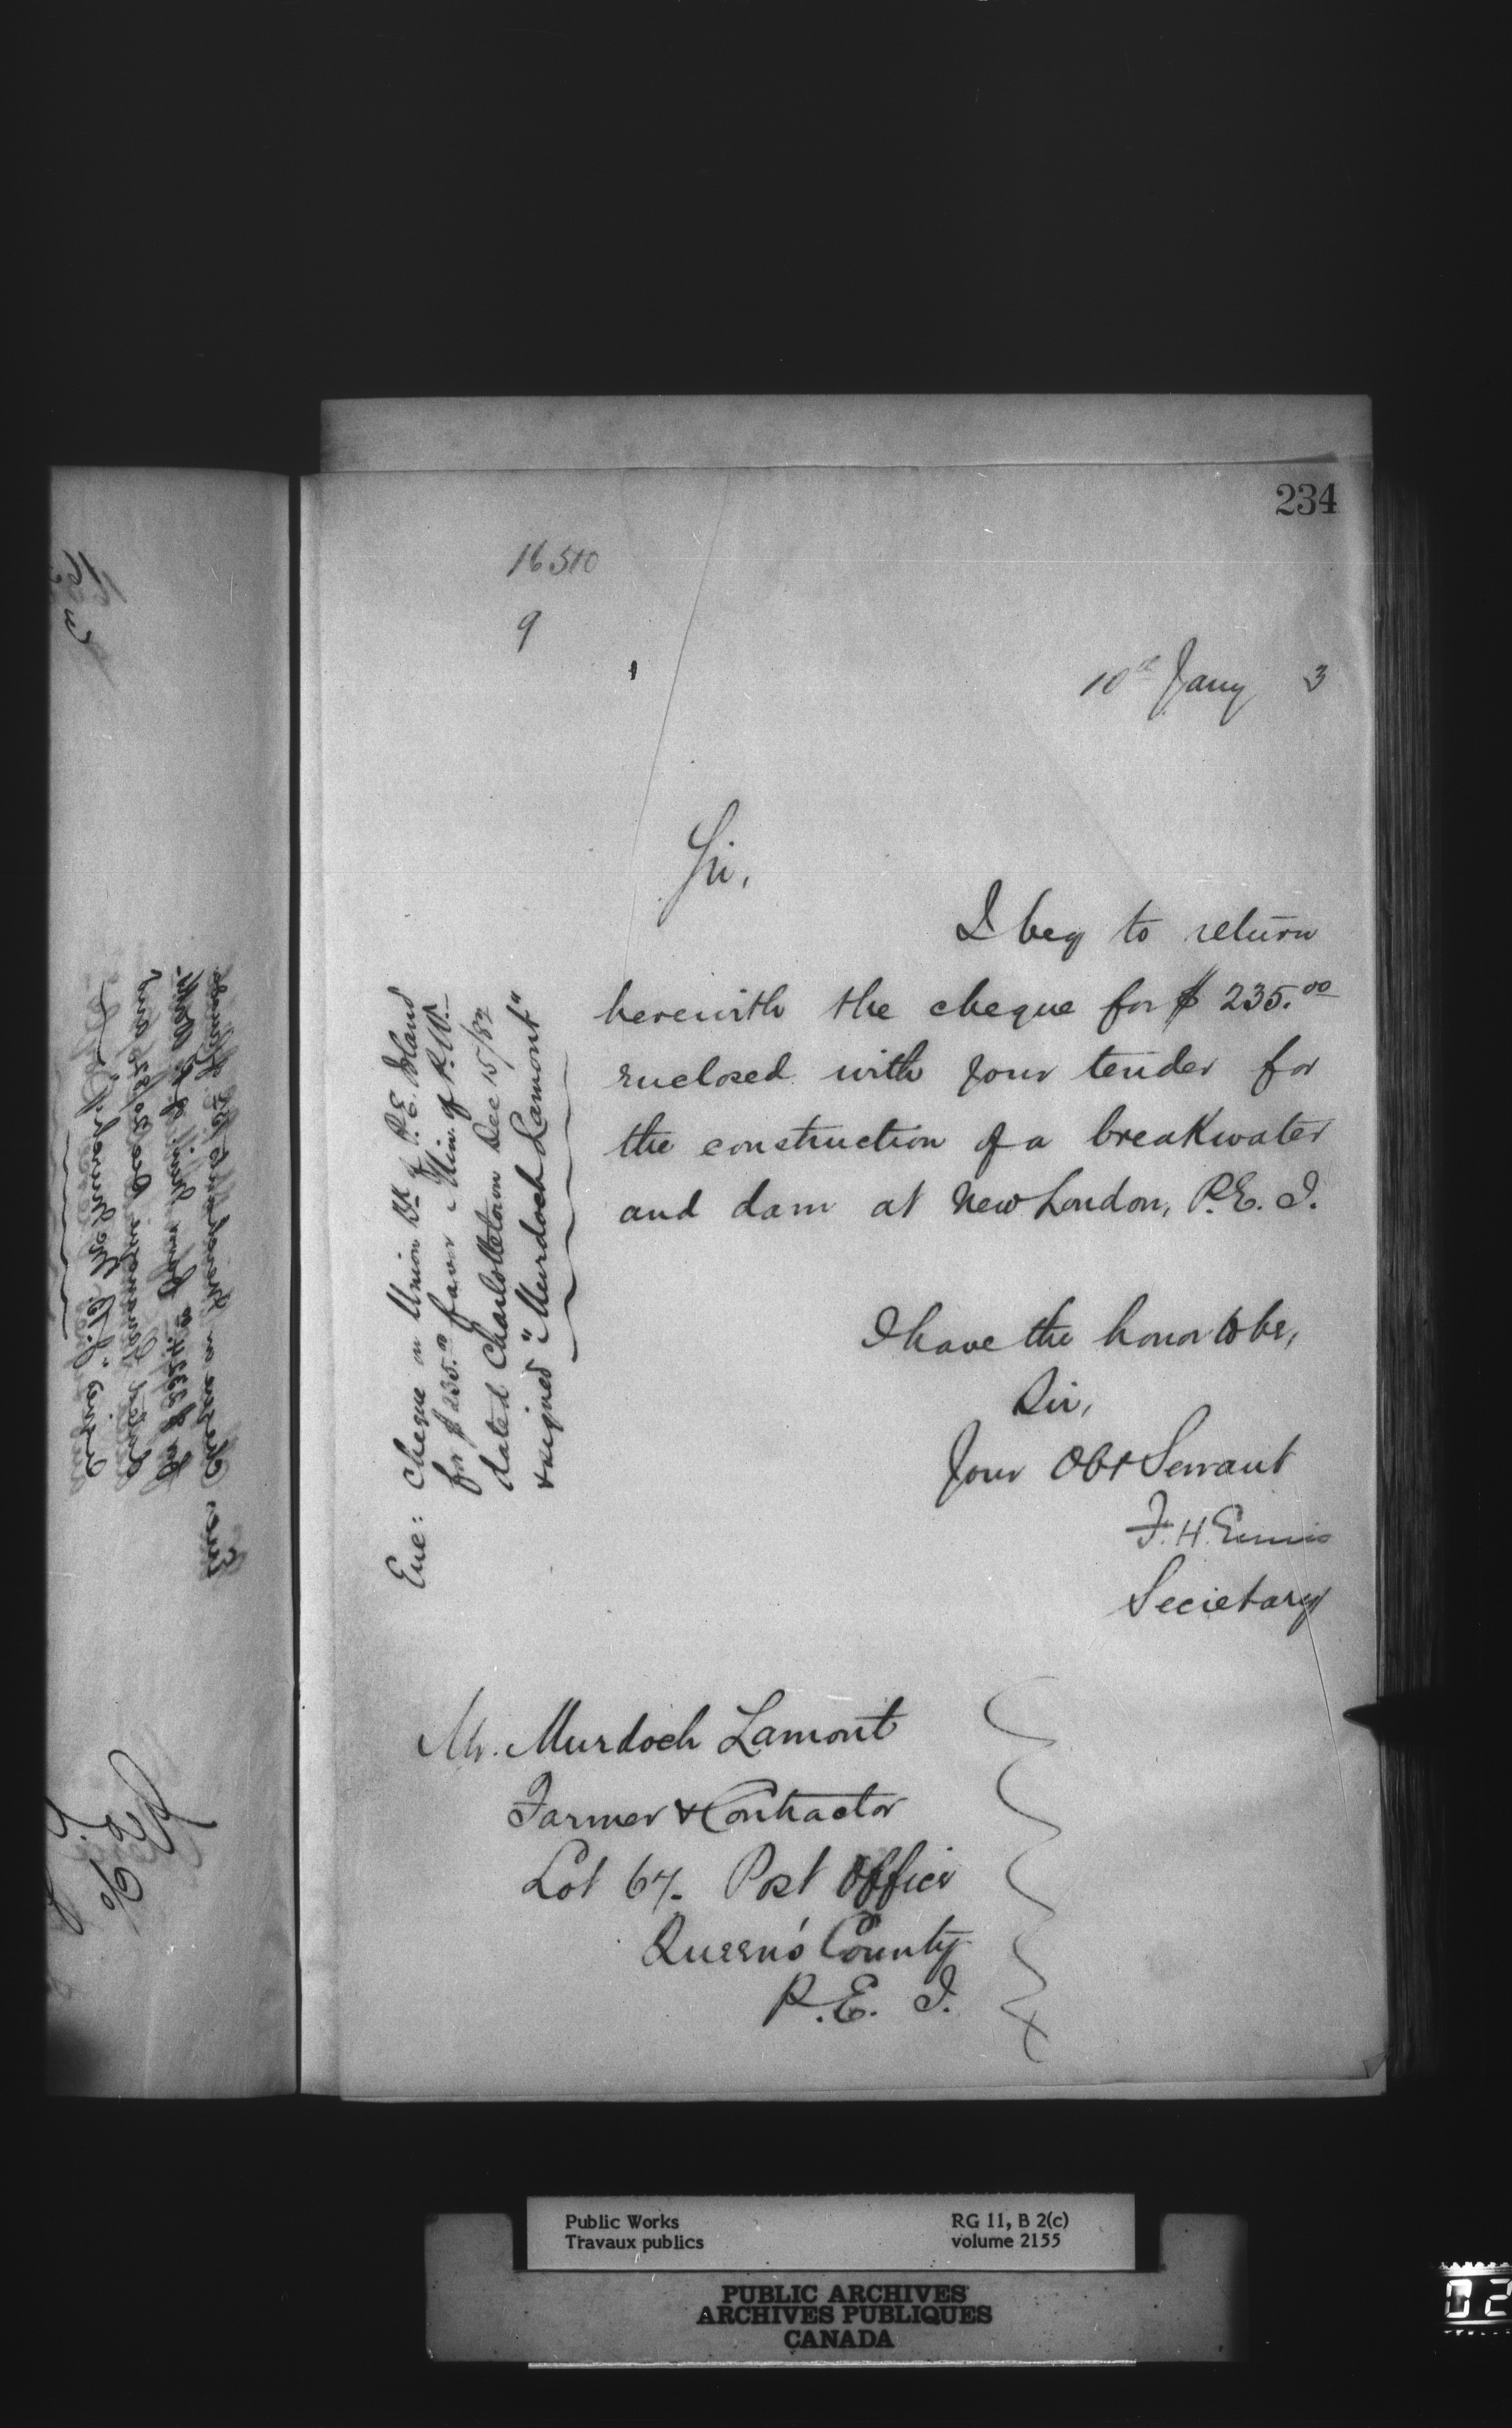 234
16510
9
10th Jany 3
Sir,
I beg to return
herewith the cheque for $ 235.00
enclosed with your tender for
the construction of a breakwater
and dam at New London, P.E.I.
I have the honor to be,
Sir,
Your Obt Servant
F. H. Ennis
Secretary
Enc: Cheque on Union Bk of P.E. Island
for $235.00 favor Min. of P.W.
dated Charlottetown Dec 15/82
& signed "Murdoch Lamont"
Mr. Murdoch Lamont
Farmer & Contractor
Lot 67. Post Office
Queen's County
P.E.I.
Public Works
Travaux publics
RG 11, B 2(c)
volume 2155
PUBLIC ARCHIVES
ARCHIVES PUBLIQUES
CANADA
02